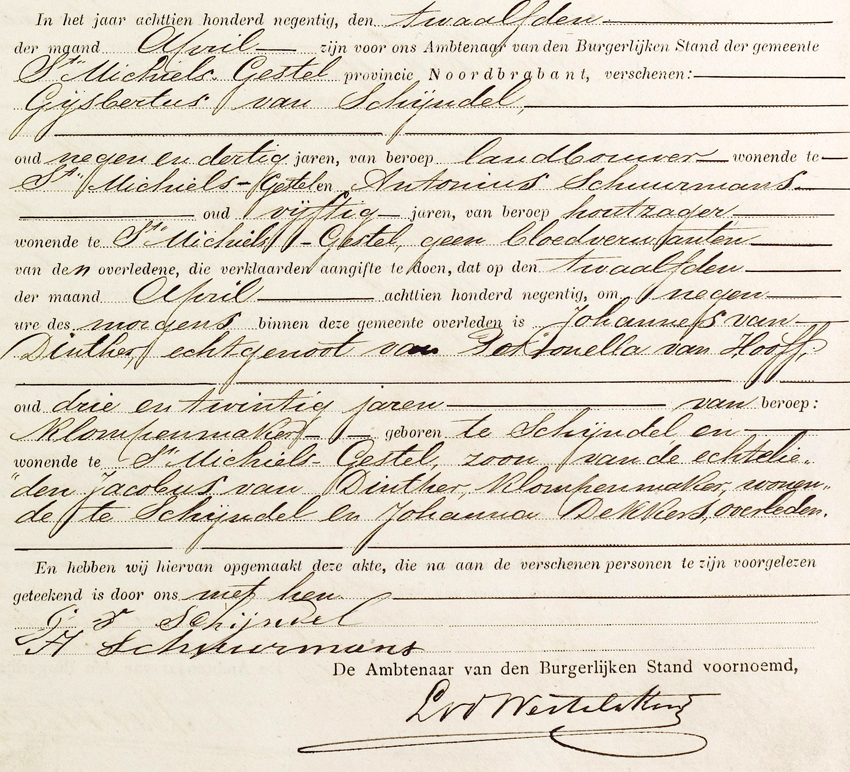 In het jaar achttien honderd negentig, den twaalfden
der maand April zijn voor ons Ambtenaar van den Burgerlijken Stand der gemeente
St. Michiels-Gestel provincie Noordbrabant, verschenen:
Gijsbertus van Schijndel,
oud negen en dertig jaren, van beroep landbouwer wonende te
St. Michiels-Gestel en Antonius Schuurmans
oud vijftig jaren, van beroep houtzager
wonende te St. Michiels-Gestel, geen bloedverwanten
van den overledene, die verklaarden aangifte te doen, dat op den twaalfden
der maand April achttien honderd negentig, om negen
ure des morgens binnen deze gemeente overleden is Johannes van
Dinther, echtgenoot van Petronella van Hooff,
oud drie en twintig jaren van beroep:
klompenmaker geboren te Schijndel en
wonende te St. Michiels-Gestel, zoon van de echtelie„
„den Jacobus van Dinther, klompenmaker, wonen„
de te Schijndel en Johanna Dekkers, overleden.
En hebben wij hiervan opgemaakt deze akte, die na aan de verschenen personen te zijn voorgelezen
geteekend is door ons met hen.
Schijndel
Schuurmans
De Ambtenaar van den Burgerlijken Stand voornoemd,